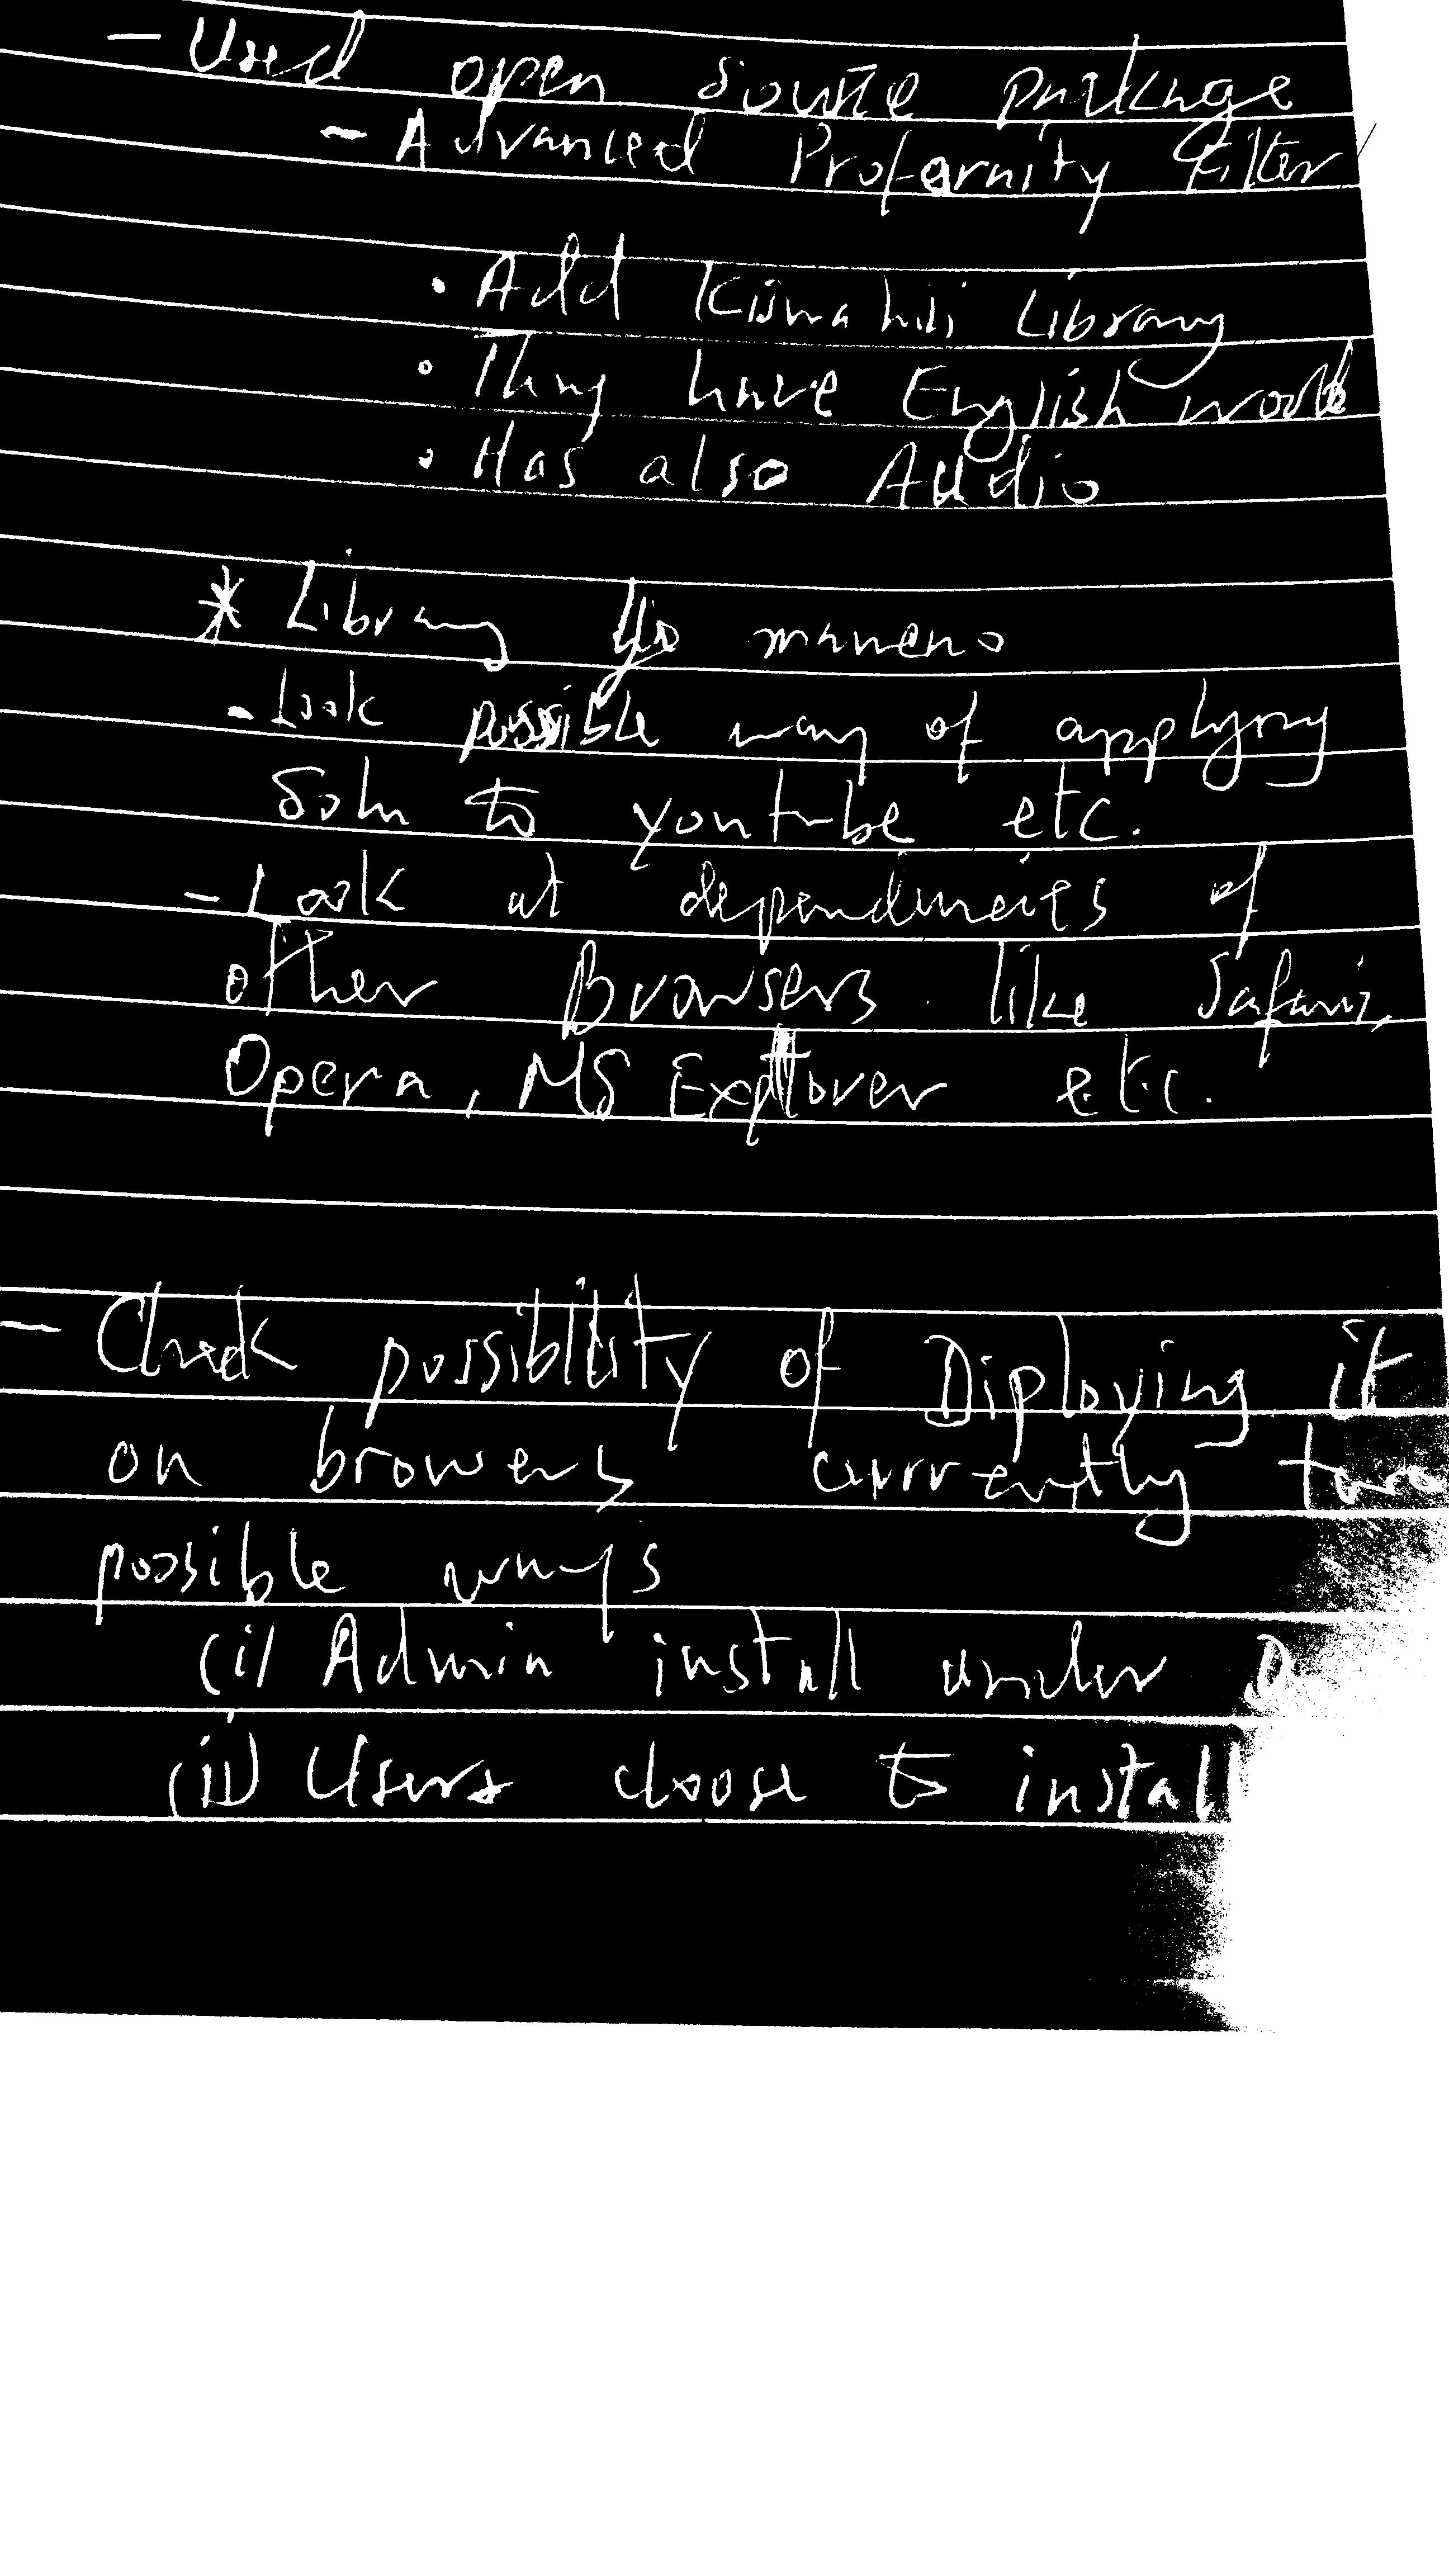 - Used open source package
- Advanced Profarnity Filter
• Add Kiswahili Library
• They have English words
• Has also Audio
* Library ya maneno
- Look possible way of applying
Soln to youtube etc.
- Look at dependencies of
other Browsers like Safari,
Opera, MS Explorer etc.
- Check possibility of Diploying it
on browers currently two
possible ways
(i) Admin install under
(ii) Users choose to install